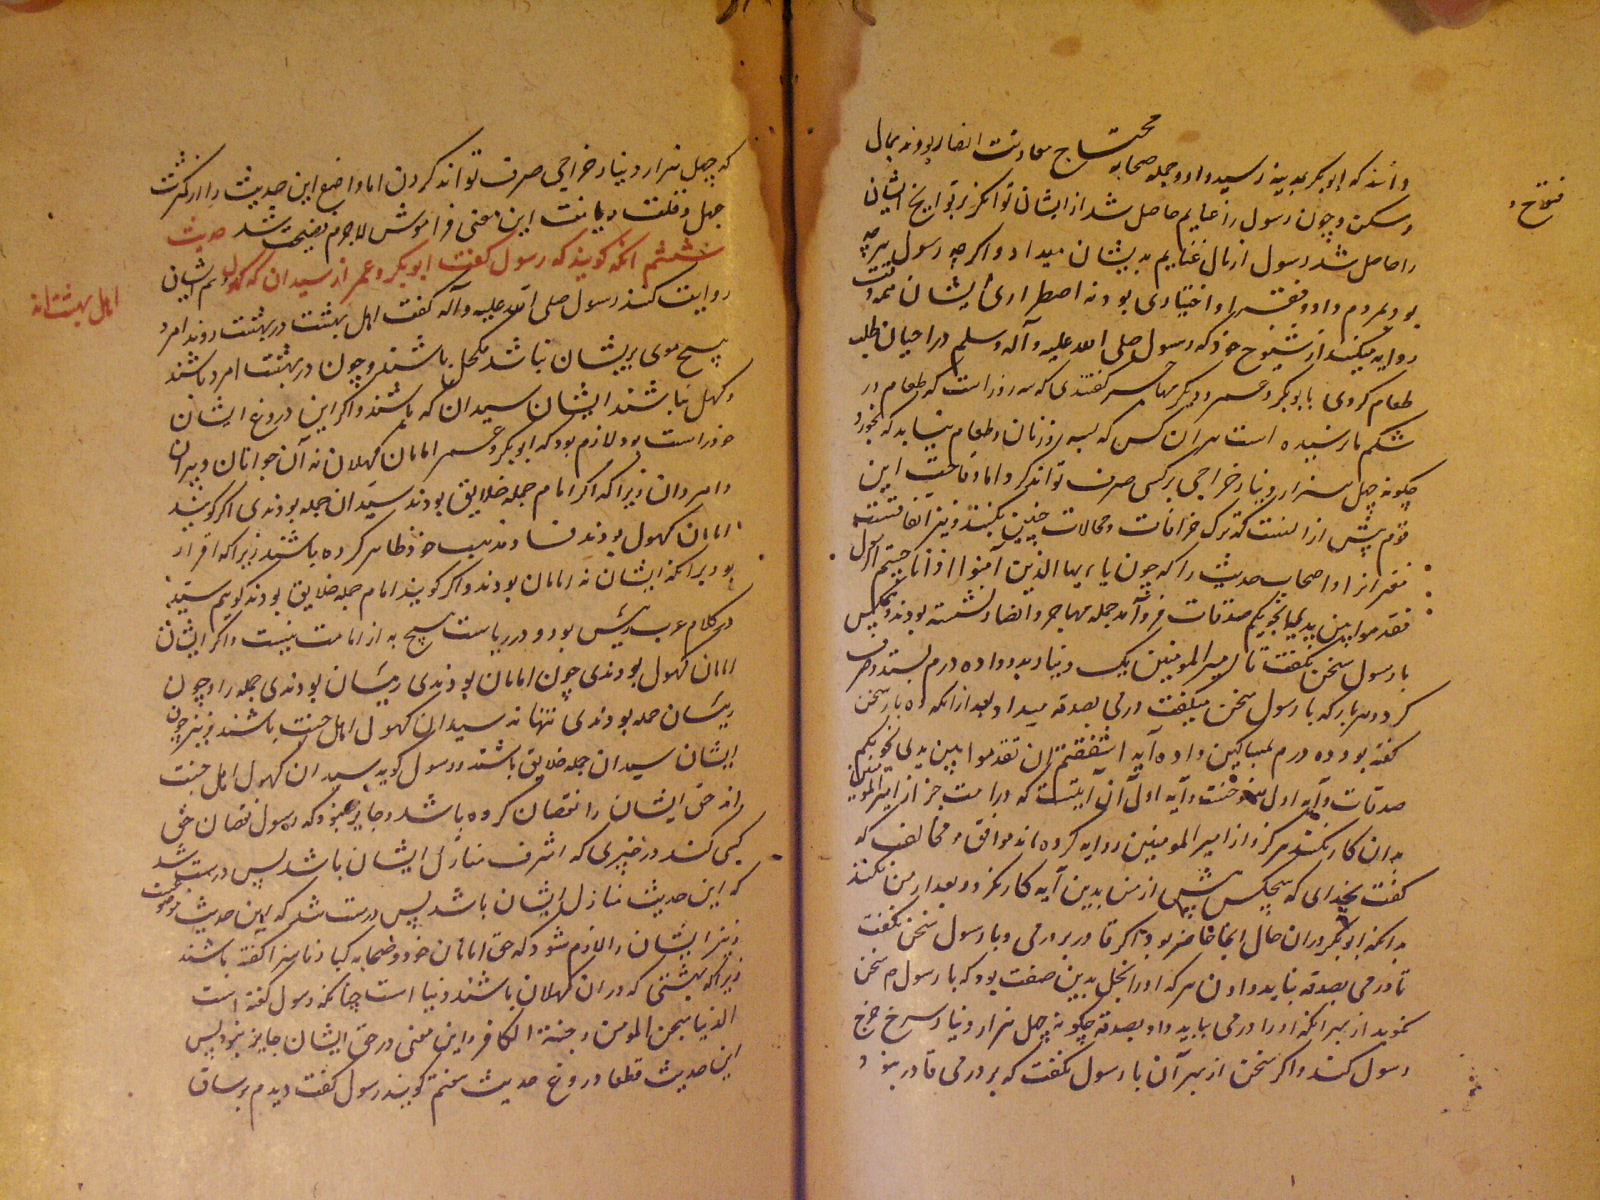 محتاج معاونت انصار بودند بمال
دانند که ابوبکر بمدینه رسید و او و جمله صحابه
و مسکن و چون رسول را غنایم حاصل شد از ایشان توانگرتر بتواریخ ایشان
فتاح
را حاصل شد رسول از مال غنایم بدیشان میداد و اگر چه رسول هر چه
بود بمردم داد و فقر او اختیاری بود نه اضطراری ایشان همه وقت
روایه میکنند از شیوخ خود که رسول صلی الله علیه و آله وسلم در احیان طلب
طعام کردی با ابوبکر و عمر و دیگر مهاجر گفتندی که سه روز است که طعام در
شکم ما نرسیده است هر آن کس که بسه روز نان و طعام نیابد که بخورد
چگونه چهل هزار دینار خراجی بر کسی صرف تواند کرد اما وقاحت این
قوم بیش از آنست که ترک خرافات و محالات چنین بکنند و نیز اتفاقست
مفسران را و اصحاب حدیث را که چون یا ایها الذین آمنوا اذا ناجیتم الرسول
فقدموا بین یدی نجویکم صدقات فرو آمد جمله مهاجر و انصار نشسته بودند و هیچکس
با رسول سخن نگفت تا امیر المومنین یک دینار بده درم بستد و صرف
کرد و هر بار که با رسول سخن میگفت درمی بصدقه میداد بعد از آنکه ده بار سخن
گفته بود و ده درم بمساکین داده آیه اشفقتم ان تقدموا بین یدی نجویکم
صدقات و آیه اول منسوخست و آیه اول آن آیتست که در امت جز از امیر المومنین
بدان کار نکند هرگز و از امیر المومنین روایه کرده اند موافق و مخالف که
گفت بخدای که هیچکس پیش از من بدین آیه کار نکرد و بعد از من نکند
بدانکه ابوبکر در آن حال آنجا حاضر بود اگر قادر بر درمی و با رسول سخن نگفت
تا درمی بصدقه نباید دادن هر که او را بخل بدین صفت بود که با رسول م سخن
نگوید از بهر آنکه او را درمی بباید داد بصدقه چگونه چهل هزار دینار سرخ خرج
رسول کند و اگر سخن از بهر آن با رسول نگفت که بر درمی قادر نبود
که چهل هزار دینار خراجی صرف تواند کردن اما واضع این حدیث را از کثرت
جهل و قلت دیانت این معنی فراموش لاجرم فضیحت شد حدیث
ششم آنکه گویند که رسول گفت ابوبکر و عمر از سیدان که کهول
اهل بهشت اند
روایت کنند رسول صلی الله علیه و آله گفت اهل بهشت در بهشت روند امرد
هیچ موی بریشان نباشد مکحل باشند و چون در بهشت امرد باشند
و کهل نباشند ایشان سیدان که باشند و اگر این دروغ ایشان
خود راست بود لازم بود که ابوبکر و عمر امامان کهلان نه آن جوانان و پیران
و امردان زیرا که اگر امام جمله خلایق بودند سیدان جمله بودندی اگر گویند
امامان کهول بودند فساد مذهب خود ظاهر کرده باشند زیرا که اقرار
بود برانکه ایشان نه امامان بودند و اگر گویند امام جمله خلایق بودند گوییم سید
در کلام عرب رئیس بود و در ریاست هیچ به از امامت نیست و اگر ایشان
امامان کهول بودندی چون امامان بودندی رئیسان بودندی جمله را و چون
رئیسان جمله بودندی تنها نه سیدان کهول اهل جنت باشند و نیز چون
ایشان سیدان جمله خلایق باشند و رسول گوید سیدان کهول اهل جنت
اند حق ایشان را نقصان کرده باشد و جایز نبود که رسول نقصان حق
کسی کند در خبری که اشرف منازل ایشان باشد پس درست شد
که این حدیث منازل ایشان باشد پس درست شد که این حدیث موضوعست
و نیز ایشان را لازم شود که حق امامان خود و صحابه کبار ناسزا گفته باشند
زیرا که بهشتی که در آن کهلان باشند دنیا است چنانکه رسول گفته است
الدنیا سجن المومن و جنة الکافر و این معنی در حق ایشان جایز نبود پس
این حدیث قطعا دروغ حدیث هفتم گویند رسول گفت دیدم بر ساق